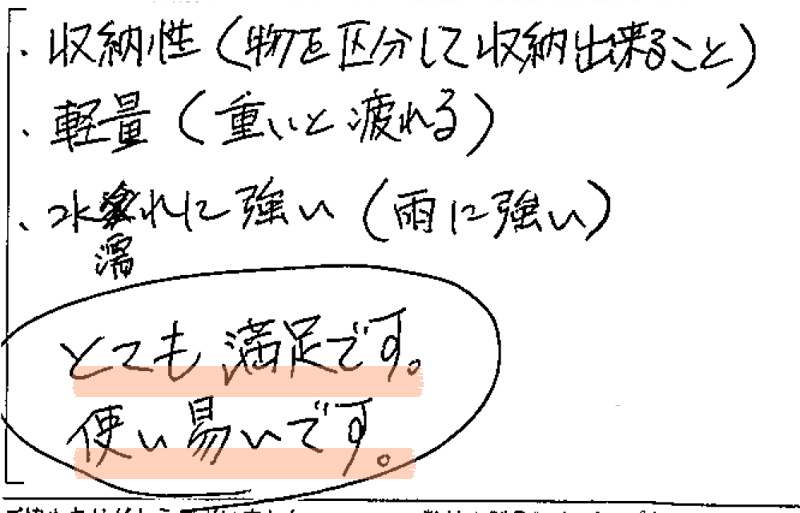 ・収納性(物を区分して収納出来ること)
・軽量(重いと疲れる)
・水濡れに強い(雨に強い)
とても満足です。
使い易いです。